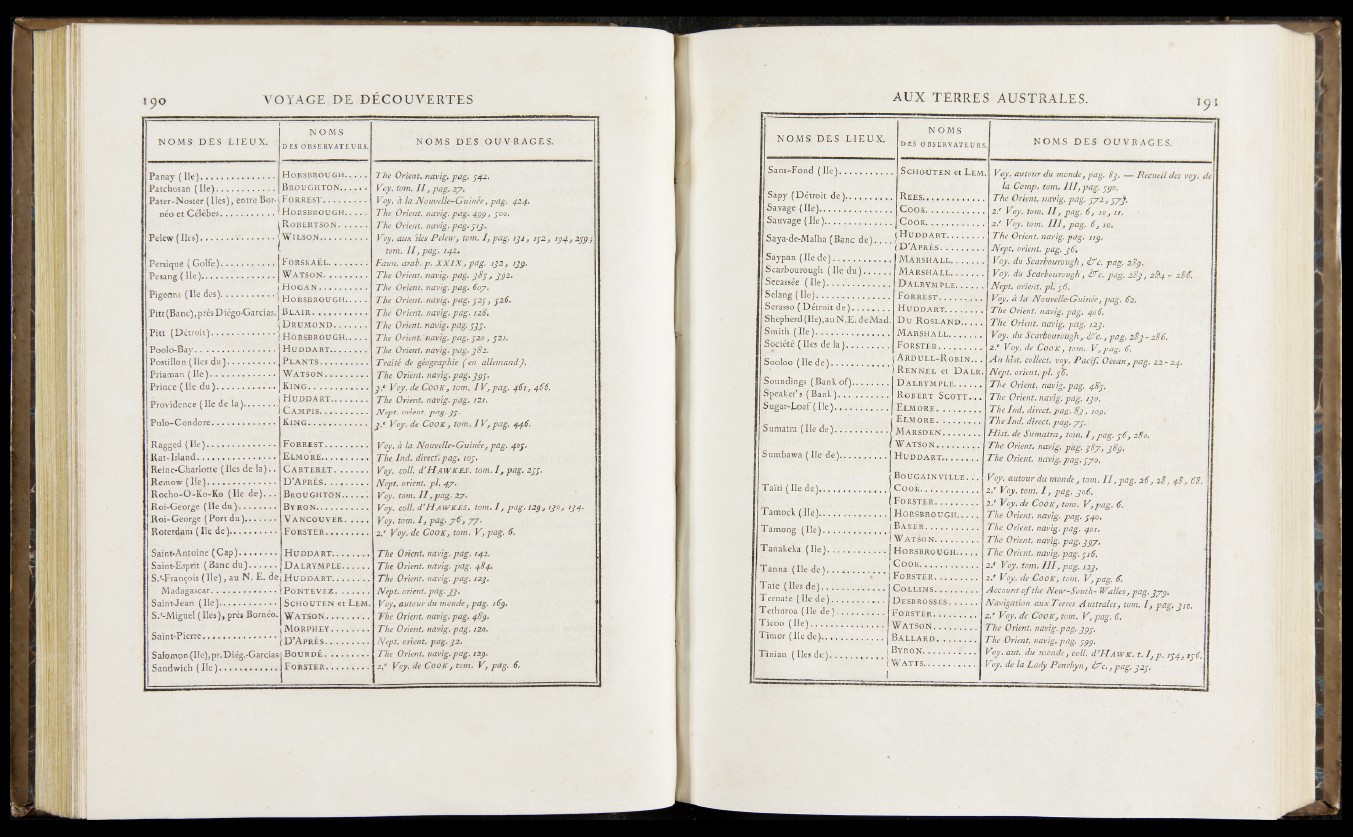 190 VOYAGE DE DÉCOUVERTES
NOMS DES LIEUX. NOMS DES OBSERVATEURS. NOMS DES OUVRAGES.
Panay (Ile)............... HORSBROUGH..... The Orient. navig. pag. 542.
Patchusan (Ile)............ BROUGHTON...... Voy. tom. II, pag. 27.
Pater-Noster (Iles), entre Bor- FORREST......... Voy. à la Nouvelle-Guinée, pag. 424.
néo et Célèbes........... HORSBROUGH..... The Orient. navig. pag. 499, 500.
ROBERTSON....... The Orient. navig. pag. 513.
Pelew (Iles)............... WILSON.......... Voy. aux îles Pelew, tom. I, pag. 131, 152, 194, 259;
tom. II, pag. 142.
Persique (Golfe)........... FORSKAËL........ Faun. arab. p. XXIX, pag. 132, 139.
Pesang (Ile)............... WATSON......... The Orient. navig. pag. 385, 392.
Pigeons (Ile des)........... HOGAN........... The Orient. navig. pag. 607.
HORSBROUGH..... The Orient. navig. pag. 525, 526.
Pitt (Banc), près Diégo-Garcias. BLAIR............ The Orient. navig. pag. 128.
Pitt (Détroit)............. DRUMOND....... The Orient. navig. pag. 535.
HORSBROUGH..... The Orient. navig. pag. 520, 521.
Poolo-Bay................ HUDDART........ The Orient. navig. pag. 382.
Postillon (Iles du).......... PLANTS.......... Traité de géographie (en allemand).
Priaman (Ile)............. WATSON......... The Orient. navig. pag. 395.
Prince (Ile du)............ KING............ 3.e Voy. de COOK, tom. IV, pag. 461, 466.
Providence (Ile de la)....... HUDDART........ The Orient. navig. pag. 121.
CAMPIS.......... Nept. orient. pag. 35.
Pulo-Condore............. KING............ 3.e Voy. de COOK, tom. IV, pag. 446.
Ragged (Ile).............. FORREST......... Voy. à la Nouvelle-Guinée, pag. 405.
Rat-Island................ ELMORE.......... The Ind. direct. pag. 105.
Reine-Charlotte (Iles de la).. CARTERET....... Voy. coll. d'HAWKES. tom. I, pag. 255.
Remow (Ile).............. D'APRÈS......... Nept. orient. pl. 47.
Rocho-O-Ko-Ko (Ile de)... BROUGHTON...... Voy. tom. II, pag. 27.
Roi-George (Ile du)........ BYRON........... Voy. coll. d'HAWKES. tom. I, pag. 129, 130, 134.
Roi-George (Port du)....... VANCOUVER..... Voy. tom. I, pag. 76, 77.
Roterdam (Ile de).......... FORSTER......... 2.e Voy. de COOK, tom. V, pag. 6.
Saint-Antoine (Cap)........ HUDDART........ The Orient. navig. pag. 142.
Saint-Esprit (Banc du)...... DALRYMPLE...... The Orient. navig. pag. 484.
S.t-François (Ile), au N. E. de HUDDART........ The Orient. navig. pag. 123.
Madagascar............. PONTEVEZ....... Nept. orient. pag. 33.
Saint-Jean (Ile)............ SCHOUTEN et LEM. Voy. autour du monde, pag. 169.
S.t-Miguel (Iles), près Bornéo. WATSON......... The Orient. navig. pag. 489.
Saint-Pierre............... MORPHEY........ The Orient. navig. pag. 120.
D'APRÈS......... Nept. orient. pag. 32.
Salomon (Ile), pr. Diég.-Garcias BOURDÉ......... The Orient. navig. pag. 129.
Sandwich (Ile)............ FORSTER......... 2.e Voy. de COOK, tom. V, pag. 6.
AUX TERRES AUSTRALES. 191
NOMS DES LIEUX. NOMS DES OBSERVATEURS. NOMS DES OUVRAGES.
Sans-Fond (Ile)........... SCHOUTEN et LEM. Voy. autour du monde, pag. 83. — Recueil des voy. de
la Comp. tom. III, pag. 590.
Sapy (Détroit de).......... REES............ The Orient. navig. pag. 572, 573.
Savage (Ile)............... COOK............ 2.e Voy. tom. II, pag. 6, 10, 11.
Sauvage (Ile).............. COOK............ 2.e Voy. tom. III, pag. 6, 10.
Saya-de-Malha (Banc de).... HUDDART........ The Orient. navig. pag. 119.
D'APRÈS......... Nept. orient. pag. 36.
Saypan (Ile de)............ MARSHALL....... Voy. du Scarborough, &c. pag. 289.
Scarborough (Ile du)....... MARSHALL....... Voy. du Scarborough, &c. pag. 283, 284 - 286.
Secassée (Ile)............. DALRYMPLE...... Nept. orient. pl. 56.
Selang (Ile)............... FORREST......... Voy. à la Nouvelle-Guinée, pag. 62.
Serasso (Détroit de)........ HUDDART........ The Orient. navig. pag. 406.
Shepherd (Ile), au N. E. de Mad. DU ROSLAND..... The Orient. navig. pag. 123.
Smith (Ile)............... MARSHALL....... Voy. du Scarborough, &c., pag. 283-286.
Société (Iles de la)......... FORSTER......... 2.e Voy. de COOK, tom. V, pag. 6.
Sooloo (Ile de)............ ARDULL-ROBIN... An hist. collect. voy. Pacif. Ocean, pag. 22-24.
RENNEL et DALR. Nept. orient. pl. 58.
Soundings (Bank of)........ DALRYMPLE...... The Orient. navig. pag. 485.
Speaker's (Bank).......... ROBERT SCOTT... The Orient. navig. pag. 130.
Sugar-Loaf (Ile)........... ELMORE......... The Ind. direct. pag. 83, 109.
Sumatra (Ile de)........... ELMORE......... The Ind. direct. pag. 75.
MARSDEN........ Hist. de Sumatra, tom. I, pag. 56, 280.
WATSON......... The Orient. navig. pag. 387, 389.
Sumbawa (Ile de).......... HUDDART........ The Orient. navig. pag. 570.
Taïti (Ile de).............. BOUGAINVILLE... Voy. autour du monde, tom. II, pag. 26, 28, 48, 68.
COOK............ 2.e Voy. tom. I, pag. 306.
FORSTER......... 2.e Voy. de COOK, tom. V, pag. 6.
Tamock (Ile).............. HORSBROUGH..... The Orient. navig. pag. 540.
Tamong (Ile)............. BAKER........... The Orient. navig. pag. 401.
WATSON......... The Orient. navig. pag. 397.
Tanakeka (Ile)............ HORSBROUGH..... The Orient. navig. pag. 516.
Tanna (Ile de)............ COOK............ 2.e Voy. tom. III, pag. 123.
FORSTER......... 2.e Voy. de COOK, tom. V, pag. 6.
Tate (Iles de)............. COLLINS......... Account of the New-South-Walles, pag. 379.
Ternate (Ile de)........... DESBROSSES...... Navigation aux Terres Australes, tom. I, pag. 310.
Tethuroa (Ile de).......... FORSTER......... 2.e Voy. de COOK, tom. V, pag. 6.
Ticoo (Ile)............... WATSON......... The Orient. navig. pag. 395.
Timor (Ile de)............. BALLARD........ The Orient. navig. pag. 599.
Tinian (Iles de)........... BYRON........... Voy. aut. du monde, coll. d'HAWK. t. I, p. 154, 156.
WATTS........... Voy. de la Lady Penrhyn, &c., pag. 325.